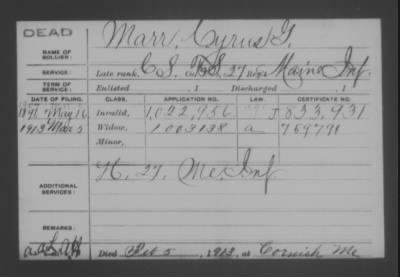 DEAD
NAME OF SOLDIER:
Marr, Cyrus G.
SERVICE:
Late rank, C.S. Co. 27 Reg't Maine Inf.
TERM OF SERVICE:
Enlisted , 1 Discharged , 1
DATE OF FILING. CLASS. APPLICATION NO. LAW. CERTIFICATE NO.
May 16 Invalid, 1,042,956 J 833,931
1913 Mar 5 Widow, 1003138 a 759791
Minor,
ADDITIONAL SERVICES:
H, 27, Me. Inf
REMARKS:
Died Feb 5, 1913, at Cornish Me